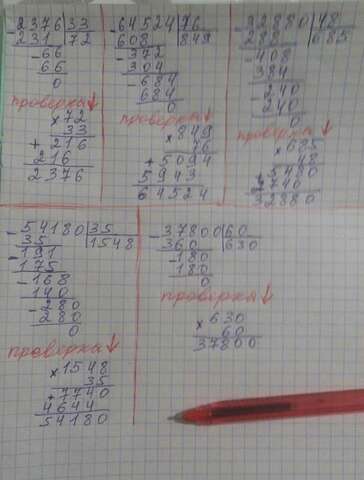 2376|33
231 72
66
66
0
проверка ↓
×72
33
+216
216
2376
-64524|76
608 849
-372
304
-684
684
0
проверка ↓
×849
76
+5094
5943
64524
-32880|48
288 685
-408
384
-240
240
0
проверка ↓
×685
48
+5480
2740
32880
-54180|35
35 1548
-191
175
-168
140
-280
280
0
проверка ↓
×1548
35
+7740
4644
54180
-37800|60
360 630
-180
180
0
проверка ↓
×630
60
37800